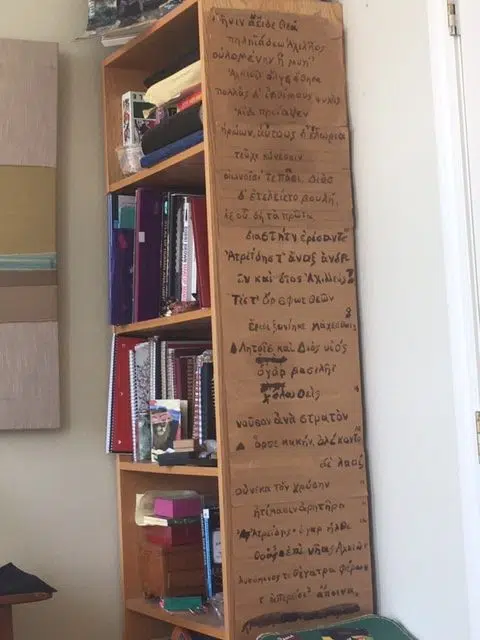 μῆνιν ἄειδε θεὰ
πηληϊάδεω Ἀχιλῆος
οὐλομένην ἣ μυρί
Ἀχαιοῖς ἄλγε ἔθηκε
πολλὰς δ' ἰφθίμους ψυχὰς
Ἄϊδι προίαψεν
ἡρώων, αὐτους δ' ἑλώρια
τεῦχε κύνεσσιν
οἰωνοῖσί τε πᾶσι. Διὸς
δ' ἐτελείετο βουλή,
ἐξ οὗ δὴ τὰ πρῶτα
διαστήτην ἐρίσαντε
Ἀτρεΐδης τ' ἄναξ ἀνδρ
ῶν καὶ δῖος Ἀχιλλεύς
Τίς τ' ἄρ σφωε θεῶν
ἔριδι ξυνέηκε μάχεσθαι;
Λητοῦς καὶ Διὸς υἱός
ὁ γὰρ βασιλῆϊ
χολωθεὶς
νοῦσον ἀνὰ στρατὸν
ὄρσε κακήν, ὀλέκοντο
δὲ λαοί
οὕνεκα τὸν χρύσην
ἠτίμασεν ἀρητῆρα
Ἀτρεΐδης· ὁ γὰρ ἦλθε
θοὰς ἐπὶ νῆας Ἀχαιῶν
λυσόμενός τε θύγατρα φέρων
τ' ἀπερείσι' ἄποινα,